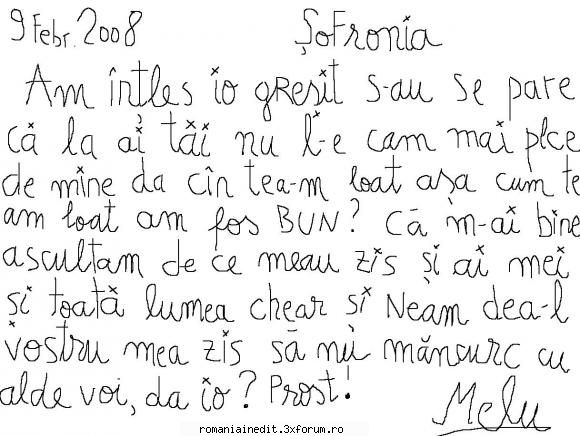 9 Febr. 2008 ȘoFronia
Am întles io gResit s-au se pare
că la ai tăi nu l-e cam mai plce
de mine da cîn tea-m loat așa cum te
am loat am fos BUN? Că m-ai bine
ascultam de ce meau zis și ai mei
și toată lumea chear si Neam dea-l
vostru mea zis să nu măncurc cu
alde voi, da io? Prost!
Melu
romaniainedit.3xforum.ro